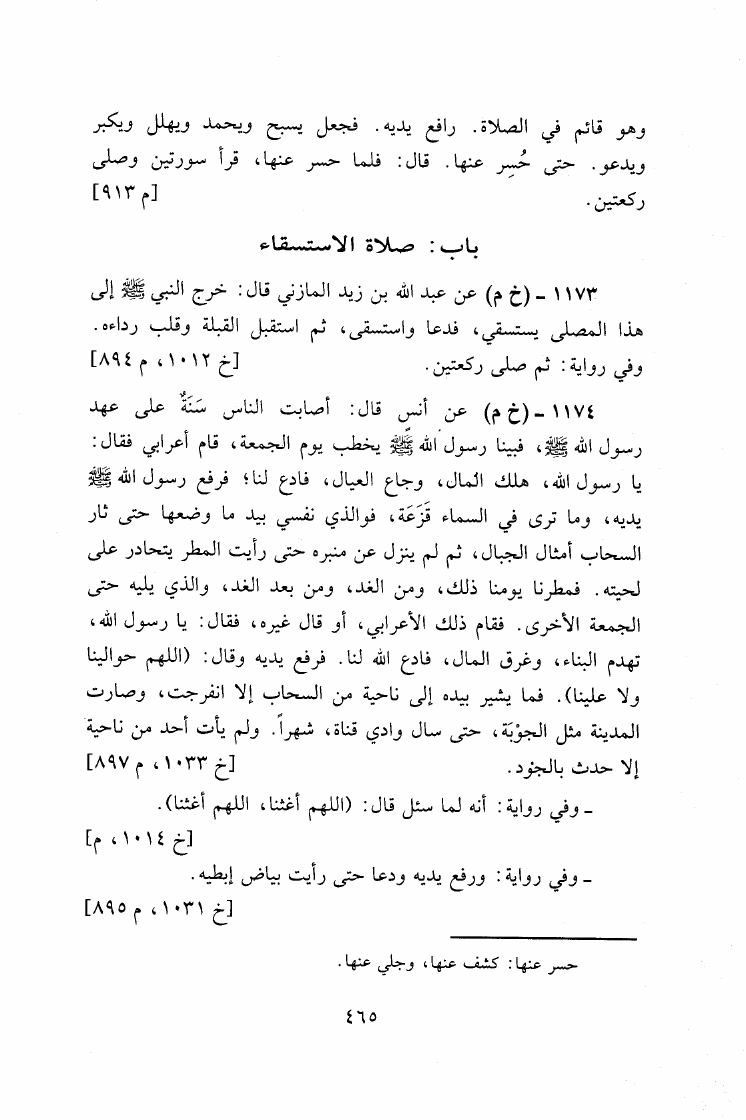 وهو قائم في الصلاة. رافع يديه. فجعل يسبح ويحمد ويهلل ويكبر
ويدعو. حتى حُسِر عنها. قال: فلما حسر عنها، قرأ سورتين وصلى
ركعتين. [م ٩١٣]
باب: صلاة الاستسقاء
١١٧٣ - (خ م) عن عبد الله بن زيد المازني قال: خرج النبي ﷺ إلى
هذا المصلى يستسقي، فدعا واستسقى، ثم استقبل القبلة وقلب رداءه.
وفي رواية: ثم صلى ركعتين. [خ ١٠١٢، م ٨٩٤]
١١٧٤ - (خ م) عن أنسٍ قال: أصابت الناس سَنَةٌ على عهد
رسول الله ﷺ، فبينا رسول الله ﷺ يخطب يوم الجمعة، قام أعرابي فقال:
يا رسول الله، هلك المال، وجاع العيال، فادع لنا؛ فرفع رسول الله ﷺ
يديه، وما ترى في السماء قَزَعَة، فوالذي نفسي بيد ما وضعها حتى ثار
السحاب أمثال الجبال، ثم لم ينزل عن منبره حتى رأيت المطر يتحادر على
لحيته. فمطرنا يومنا ذلك، ومن الغد، ومن بعد الغد، والذي يليه حتى
الجمعة الأخرى. فقام ذلك الأعرابي، أو قال غيره، فقال: يا رسول الله،
تهدم البناء، وغرق المال، فادع الله لنا. فرفع يديه وقال: (اللهم حوالينا
ولا علينا). فما يشير بيده إلى ناحية من السحاب إلا انفرجت، وصارت
المدينة مثل الجوْبَة، حتى سال وادي قناة، شهراً. ولم يأت أحد من ناحية
إلا حدث بالجوْد. [خ ١٠٣٣، م ٨٩٧]
ـ وفي رواية: أنه لما سئل قال: (اللهم أغثنا، اللهم أغثنا).
[خ ١٠١٤، م]
ـ وفي رواية: ورفع يديه ودعا حتى رأيت بياض إبطيه.
[خ ١٠٣١، م ٨٩٥]
حسر عنها: كشف عنها، وجلي عنها.
٤٦٥